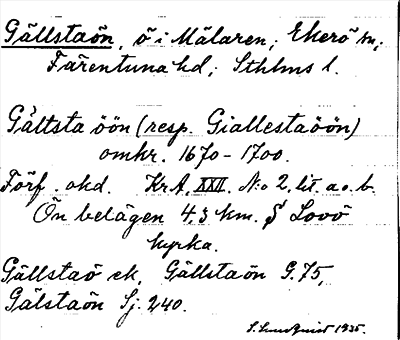 Gällstaön, ö i Mälaren, Ekerö sn,
Färentuna hd, Sthlms l.
Gåltsta öön (resp. Giallestaöön)
omkr. 1670-1700.
Förf. okd. KrA. XXII. N:o 2, lit. a o. b.
Ön belägen 4,3 km. S Lovö
kyrka.
Gällstaö ek, Gällstaön G. 75,
Gälstaön Sj. 240.
1935.